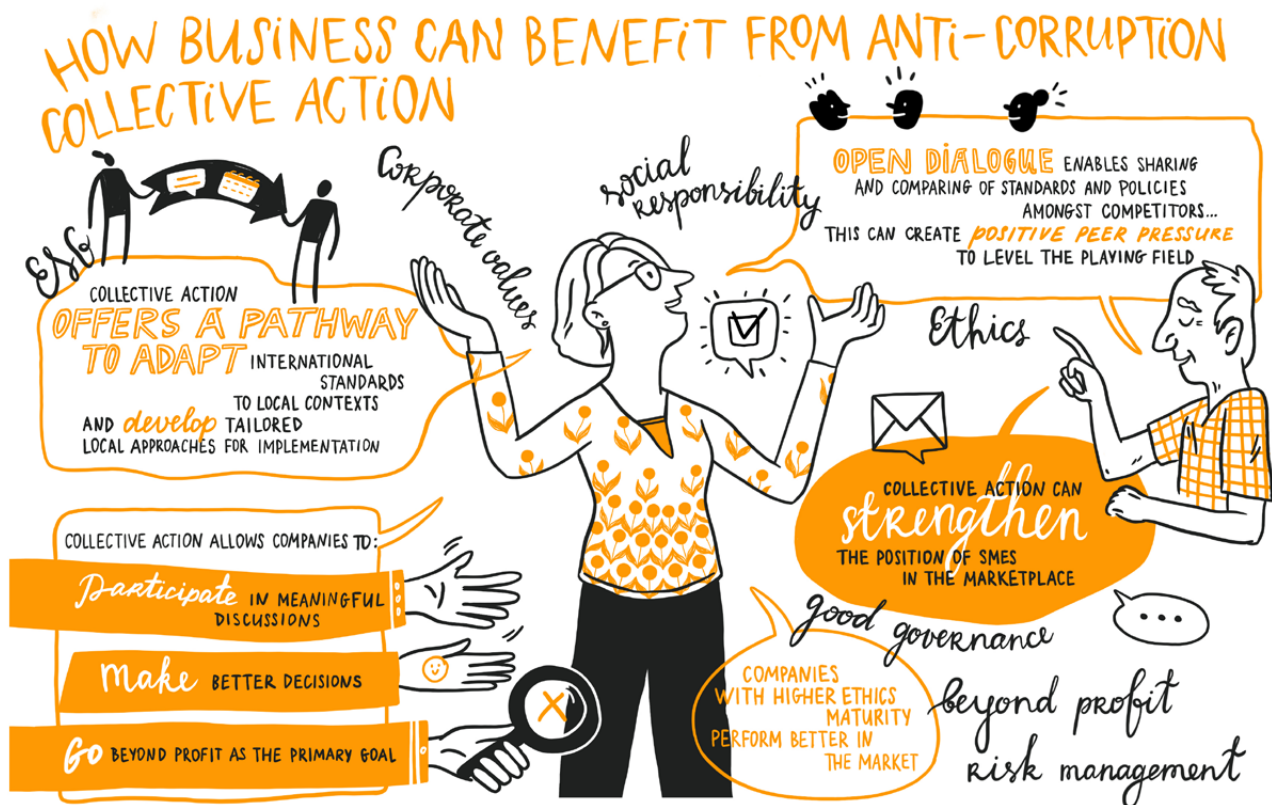 HOW BUSINESS CAN BENEFIT FROM ANTI-CORRUPTION
COLLECTIVE ACTION
ESG
COLLECTIVE ACTION
OFFERS A PATHWAY
TO ADAPT INTERNATIONAL
STANDARDS
TO LOCAL CONTEXTS
AND develop TAILORED
LOCAL APPROACHES FOR IMPLEMENTATION
Corporate values
social
responsibility
OPEN DIALOGUE ENABLES SHARING
AND COMPARING OF STANDARDS AND POLICIES
AMONGST COMPETITORS...
THIS CAN CREATE POSITIVE PEER PRESSURE
TO LEVEL THE PLAYING FIELD
Ethics
COLLECTIVE ACTION CAN
strengthen
THE POSITION OF SMES
IN THE MARKETPLACE
COLLECTIVE ACTION ALLOWS COMPANIES TO:
Participate IN MEANINGFUL
DISCUSSIONS
Make BETTER DECISIONS
Go BEYOND PROFIT AS THE PRIMARY GOAL
good governance
COMPANIES
WITH HIGHER ETHICS
MATURITY
PERFORM BETTER IN
THE MARKET
beyond profit
risk management